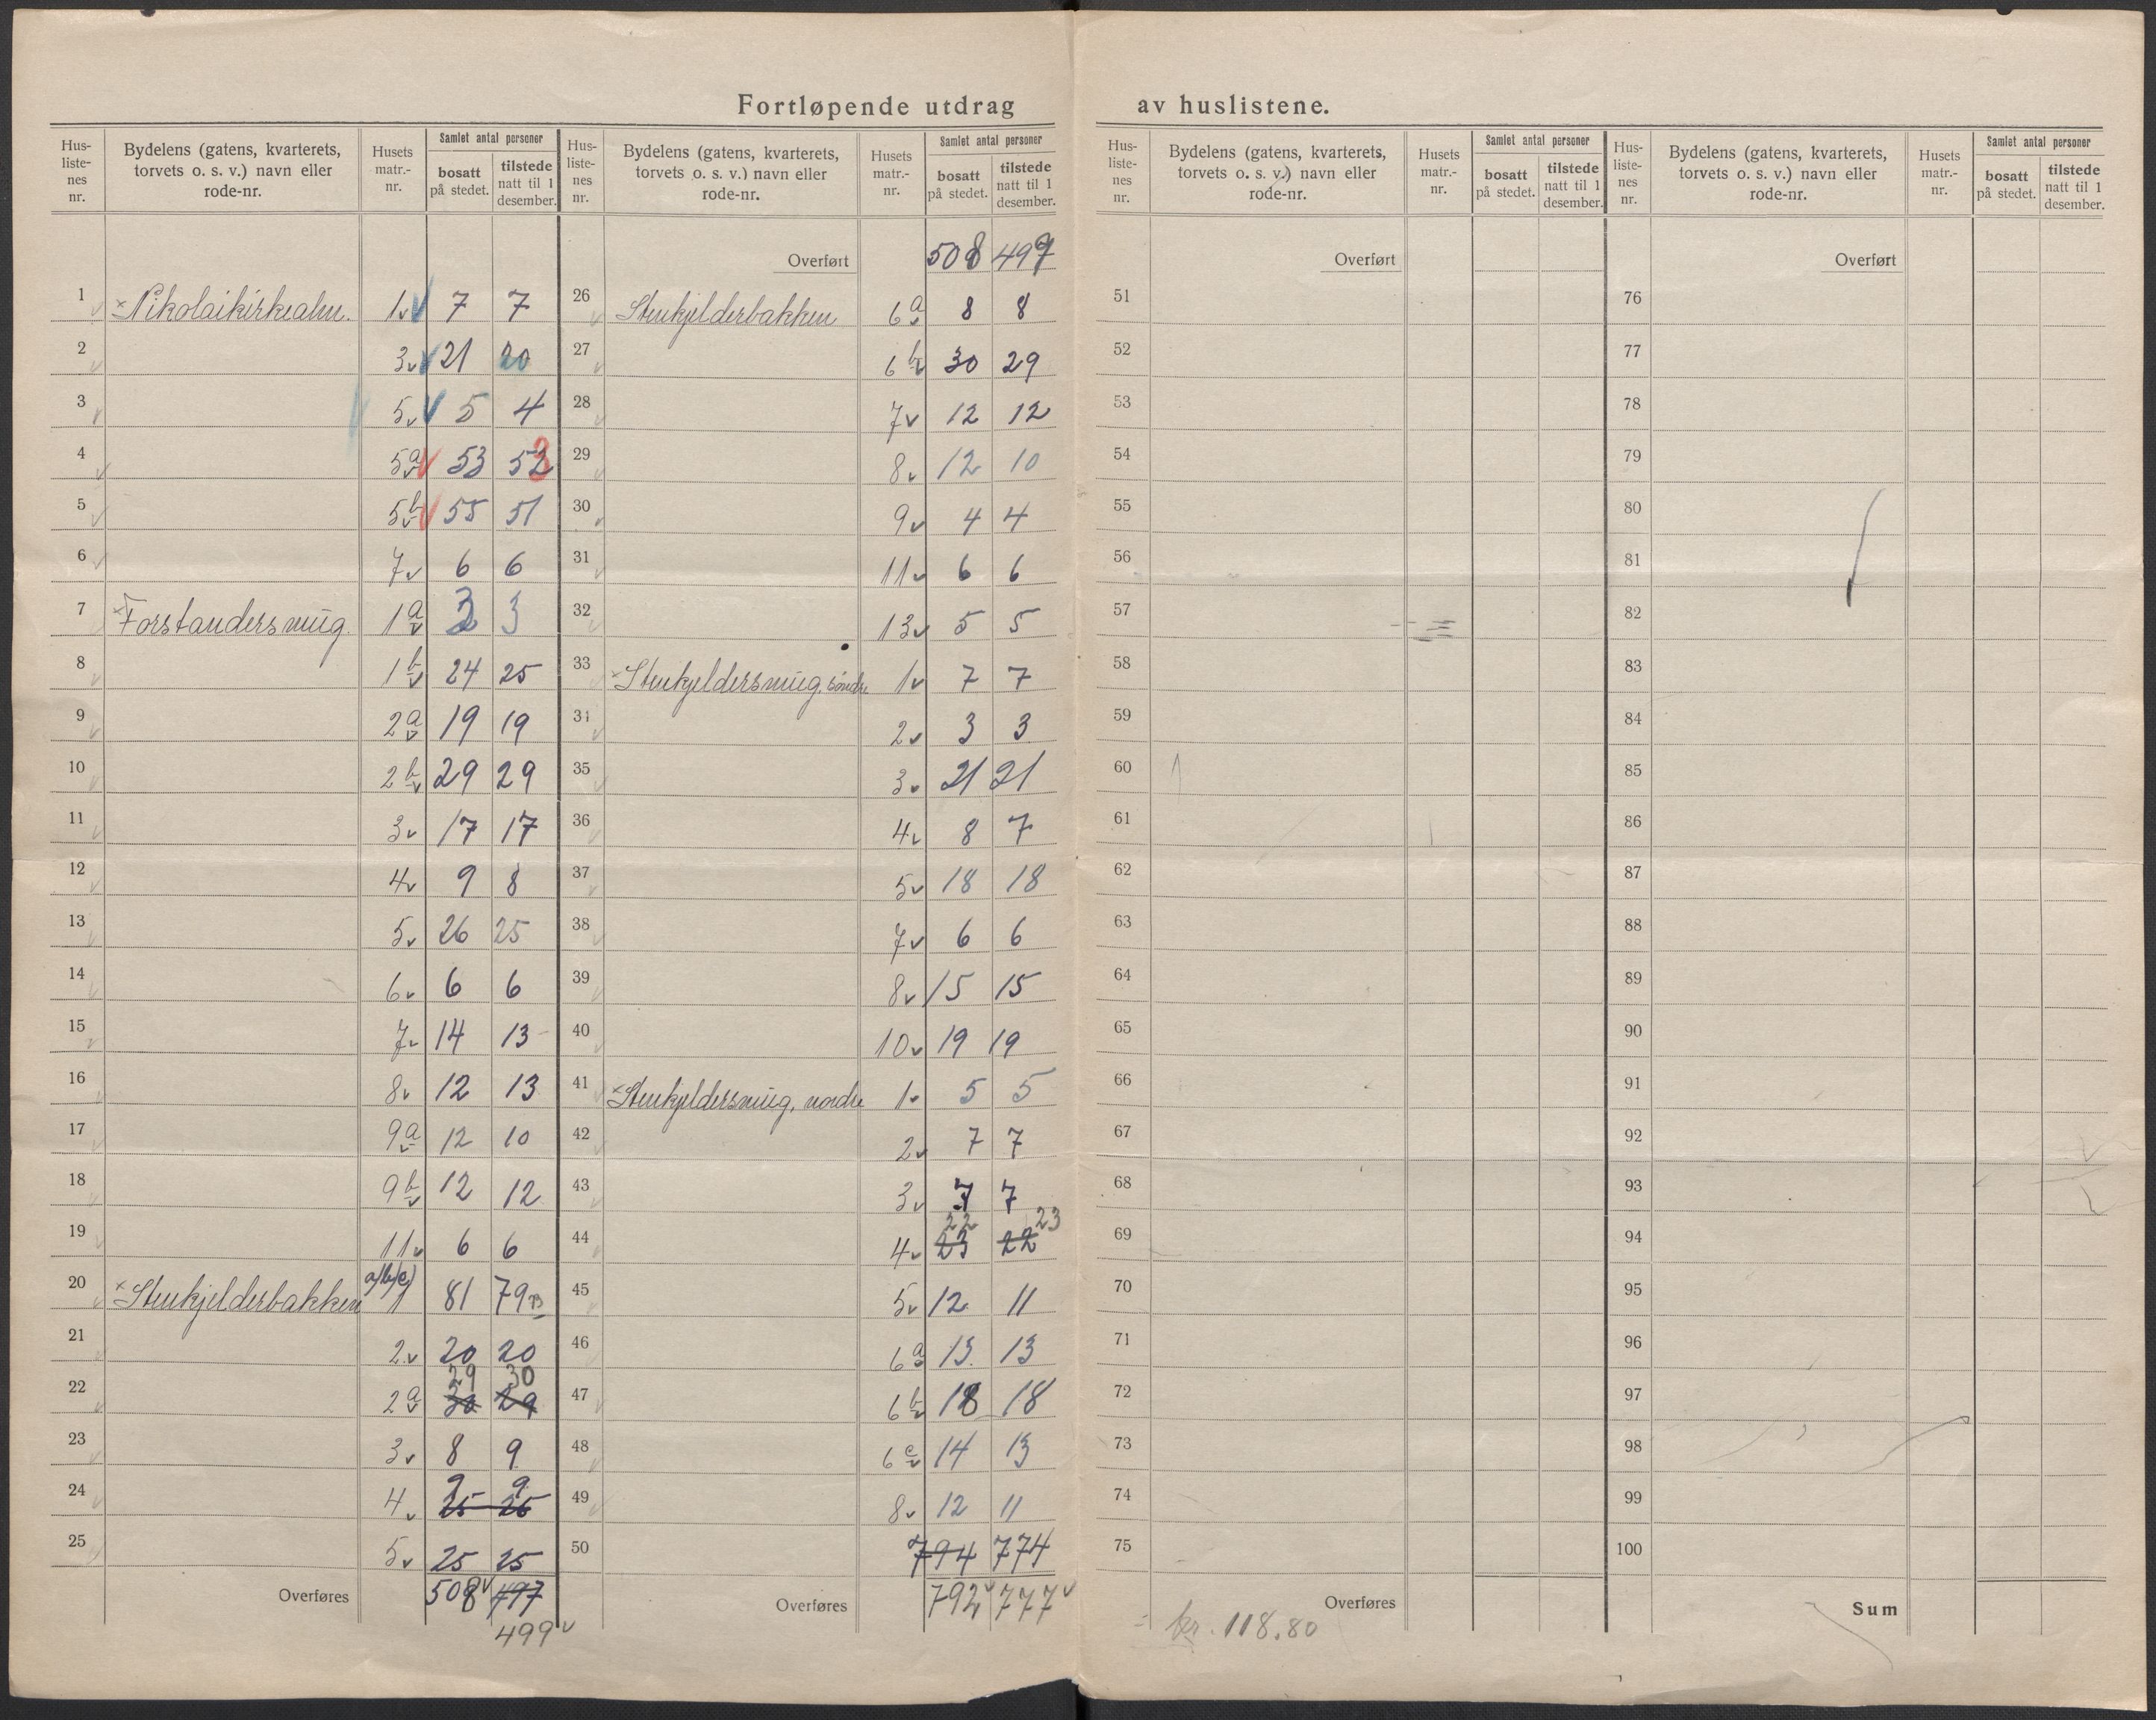 Fortløpende utdrag av huslistene.
Hus-
liste-
nes
nr.
Bydelens (gatens, kvarterets,
torvets o. s. v.) navn eller
rode-nr.
Husets
matr.-
nr.
Samlet antal personer
bosatt
på stedet.
tilstede
natt til 1
desember.
1 Nikolaikirkealm. 1 7 7
2 3 21 20
3 5 5 4
4 5a 53 53
5 5b 55 51
6 7 6 6
7 Forstandersmug 1a 3 3
8 1b 24 25
9 2a 19 19
10 2b 29 29
11 3 17 17
12 4 9 8
13 5 26 25
14 6 6 6
15 7 14 13
16 8 12 13
17 9a 12 10
18 9b 12 12
19 11 6 6
20 Stenkjelderbakken a/b/c) 1 81 79
21 2 20 20
29 30
22 2a 30 29
23 3 8 9
9 9
24 4 25 25
25 5 25 25
Overføres 508 497
499
Hus-
liste-
nes
nr.
Bydelens (gatens, kvarterets,
torvets o. s. v.) navn eller
rode-nr.
Husets
matr.-
nr.
Samlet antal personer
bosatt
på stedet.
tilstede
natt til 1
desember.
Overført 508 499
26 Stenkjelderbakken 6a 8 8
27 6b 30 29
28 7 12 12
29 8 12 10
30 9 4 4
31 11 6 6
32 13 5 5
33 Stenkjeldersmug, söndre 1 7 7
34 2 3 3
35 3 21 21
36 4 8 7
37 5 18 18
38 7 6 6
39 8 15 15
40 10 19 19
41 Stenkjeldersmug, nordre 1 5 5
42 2 7 7
43 3 7 7
22 23
44 4 23 22
45 5 12 11
46 6a 13 13
47 6b 18 18
48 6c 14 13
49 8 12 11
50 794 774
Overføres 792 777
Hus-
liste-
nes
nr.
Bydelens (gatens, kvarterets,
torvets o. s. v.) navn eller
rode-nr.
Husets
matr.-
nr.
Samlet antal personer
bosatt
på stedet.
tilstede
natt til 1
desember.
Overført
51
52
53
54
55
56
57
58
59
60
61
62
63
64
65
66
67
68
69
70
71
72
73
74
75
Overføres
kr. 118.80
Hus-
liste-
nes
nr.
Bydelens (gatens, kvarterets,
torvets o. s. v.) navn eller
rode-nr.
Husets
matr.-
nr.
Samlet antal personer
bosatt
på stedet.
tilstede
natt til 1
desember.
Overført
76
77
78
79
80
81
82
83
84
85
86
87
88
89
90
91
92
93
94
95
96
97
98
99
100
Sum